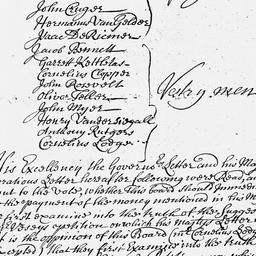 John Cruger
Hermanus VanGelder
Isaac DeRiemer
Jacob Bennett
Garrett Kettletas
Cornelius Clopper
John Roosevolt
Oliver Teller
John Myer
Henry Vanderspiegall
Anthony Rutgers
Cornelius Lodge
Vestry men
His Excellency the Governors Letter and his Ma
Letter hereafter following were Read and
put to the Vote, whether this board should Immedi
the payment of the money mentioned in his Ma
first examine into the truth of the sugges
petition on which his Majtys Letter
is the opinion of this Board (Mr Cornelius Lodge
Excepted) that they first Examine into the truth